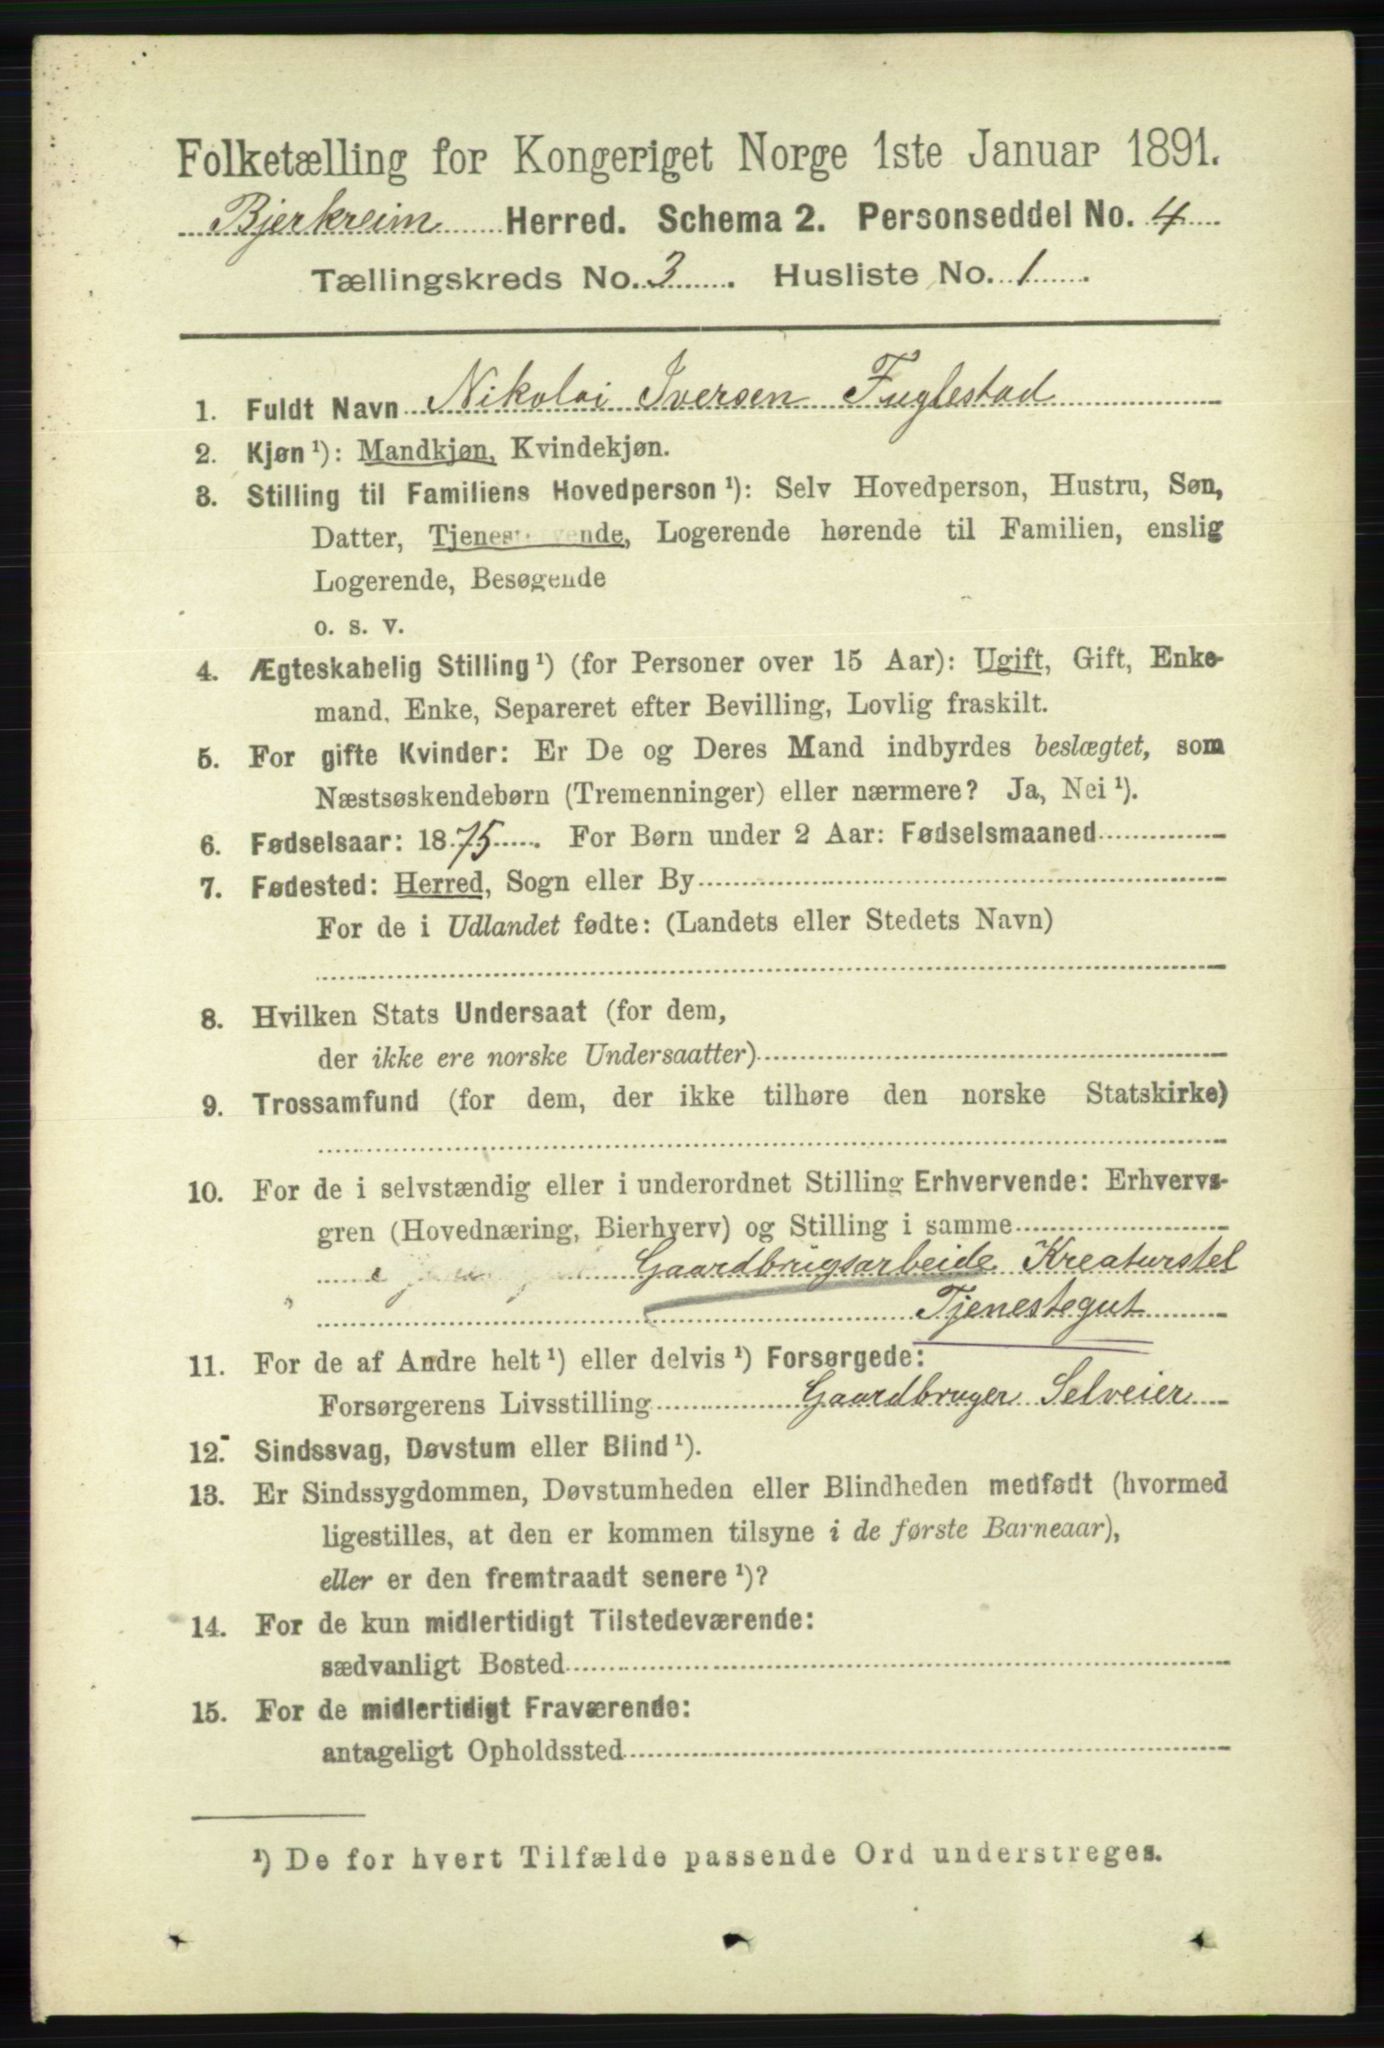 Folketælling for Kongeriget Norge 1ste Januar 1891.
Bjerkreim Herred. Schema 2. Personseddel No. 4
Tællingskreds No. 3. Husliste No. 1.
1. Fuldt Navn Nikolai Iversen Fuglestad
2. Kjøn ¹): Mandkjøn, Kvindekjøn.
3. Stilling til Familiens Hovedperson ¹): Selv Hovedperson, Hustru, Søn,
Datter, Tjenest vende, Logerende hørende til Familien, enslig
Logerende, Besøgende
o. s. v.
4. Ægteskabelig Stilling ¹) (for Personer over 15 Aar): Ugift, Gift, Enke-
mand, Enke, Separeret efter Bevilling, Lovlig fraskilt.
5. For gifte Kvinder: Er De og Deres Mand indbyrdes beslægtet, som
Næstsøskendebørn (Tremenninger) eller nærmere? Ja, Nei ¹).
6. Fødselsaar: 1875. For Børn under 2 Aar: Fødselsmaaned
7. Fødested: Herred, Sogn eller By
For de i Udlandet fødte: (Landets eller Stedets Navn)
8. Hvilken Stats Undersaat (for dem,
der ikke ere norske Undersaatter)
9. Trossamfund (for dem, der ikke tilhøre den norske Statskirke)
10. For de i selvstændig eller i underordnet Stilling Erhvervende: Erhvervs-
gren (Hovednæring, Bierhverv) og Stilling i samme
Gaardbrugsarbeide Kreaturstel
Tjenestegut
11. For de af Andre helt ¹) eller delvis ¹) Forsørgede:
Forsørgerens Livsstilling Gaardbruger Selveier
12. Sindssvag, Døvstum eller Blind ¹).
13. Er Sindssygdommen, Døvstumheden eller Blindheden medfødt (hvormed
ligestilles, at den er kommen tilsyne i de første Barneaar),
eller er den fremtraadt senere ¹)?
14. For de kun midlertidigt Tilstedeværende:
sædvanligt Bosted
15. For de midlertidigt Fraværende:
antageligt Opholdssted
¹) De for hvert Tilfælde passende Ord understreges.